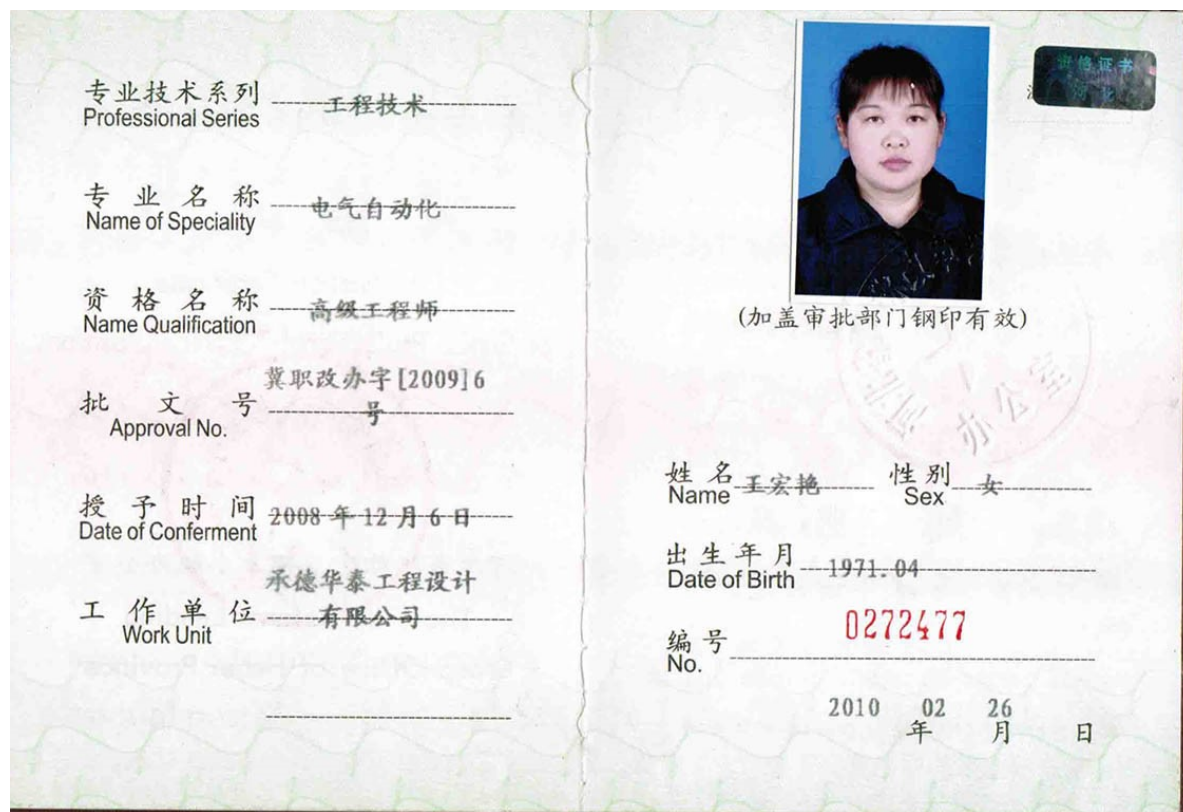 专业技术系列 工程技术
Professional Series
专业名称 电气自动化
Name of Speciality
资格名称 高级工程师
Name Qualification
冀职改办字[2009]6
批文号 号
Approval No.
授予时间 2008年12月6日
Date of Conferment
承德华泰工程设计
工作单位 有限公司
Work Unit
资格证书
河北
(加盖审批部门钢印有效)
办公室
姓名 王宏艳 性别 女
Name Sex
出生年月 1971.04
Date of Birth
编号 0272477
No.
2010 02 26
年 月 日